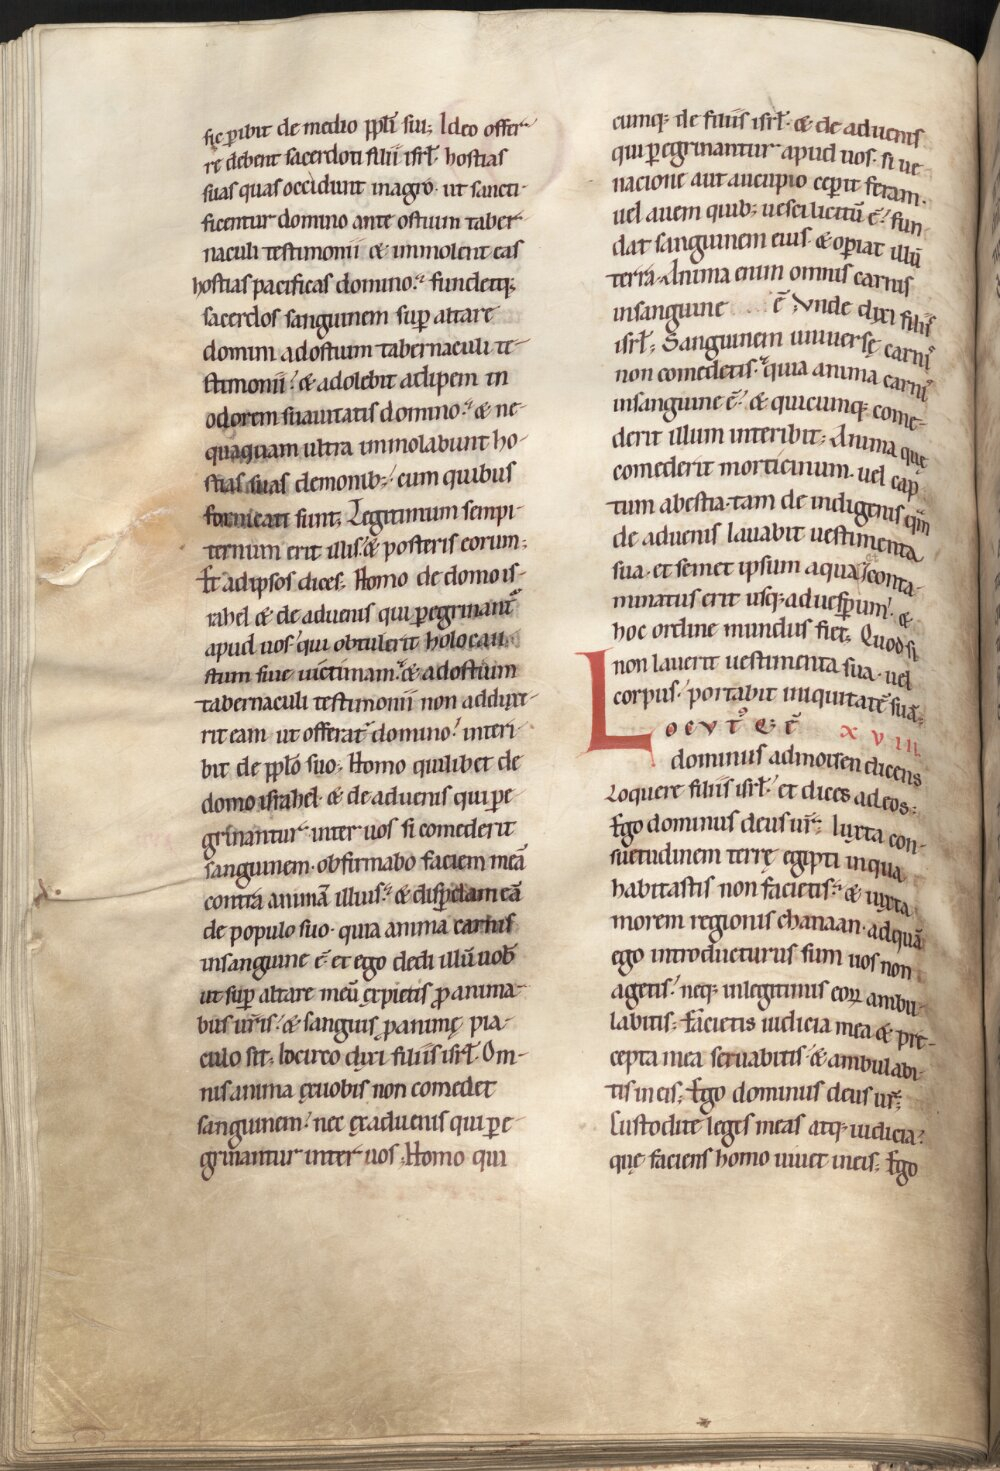 sic ꝑibit de medio ppłi sui; Ideo offer
re debent sacerdoti filii isrł. hostias
suas quas occidunt inagro. ut sancti-
ficentur domino ante ostium taber
naculi testimonii & immolent eas
hostias pacificas domino. fundetq;
sacerdos sanguinem suꝑ altare
domini adostium tabernaculi te-
stimonii. & adolebit adipem in
odorem suauitatis domino. & ne-
quaquam ultra immolabunt ho-
stias suas demonib; cum quibus
fornicati sunt; Legitimum sempi-
ternum erit illis. & posteris eorum;
Et adipsos dices; Homo de domo is-
rahel & de aduenis qui ꝑegrinant᷒
apud uos. qui obtulerit holocau-
stum siue uictimam. & adostium
tabernaculi testimonii non adduxe-
rit eam ut offerat᷒ domino. interi-
bit de ppło suo; Homo quilibet de
domo israhel. & de aduenis qui ꝑe-
grinantur inter uos si comederit
sanguinem. obfirmabo faciem meā
contra animā illius. & disꝑdam eā
de populo suo. quia anima carnis
insanguine ē et ego dedi illū uob̄
ut suꝑ altare meū expietis ꝓ anima-
bus ur̄is. & sanguis ꝓ animę pia-
culo sit; Idcirco dixi filiis isrł. Om-
nis anima exuobis non comedet
sanguinem. nec exaduenis qui ꝑe-
grinantur inter uos; Homo qui
cumq; de filiis isrł. & de aduenis
qui ꝑegrinantur apud uos. si ue
nacione aut aucupio ceperit feram.
uel auem quib; uesci licitū ē. fun
dat sanguinem eius. & oꝑiat illū
terra. Anima enim omnis carnis
insanguine ē; Vnde dixi filiis
isrł; Sanguinem uniuersę carnis
non comedetis. quia anima carnis
insanguine ē. & quicumq; come-
derit illum interibit; Anima quę
comederit morticinum. uel cap
tum abestia. tam de indigenis qm̄
de aduenis lauabit uestimenta
sua. et semet ipsum aqua. & conta-
minatus erit usq; aduesꝑum. &
hoc ordine mundus fiet; Quod si
non lauerit uestimenta sua. uel
corpus. portabit iniquitatē suā;
LOCVT᷒ QE ē XVIII
dominus admoisen dicens
Loquere filiis isrł. et dices adeos;
Ego dominus deus ur̄; Iuxta con-
suetudinem terrę egipti inqua
habitastis non facietis. & iuxta
morem regionis chanaan. adquā
ego introducturus sum uos non
agetis. neq; inlegitimis eoꝝ ambu-
labitis; Facietis iudicia mea & pre-
cepta mea seruabitis. & ambulabi-
tis in eis; Ego dominus deus ur̄;
Custodite leges meas atq; iudicia.
quę faciens homo uiuet ineis; Ego